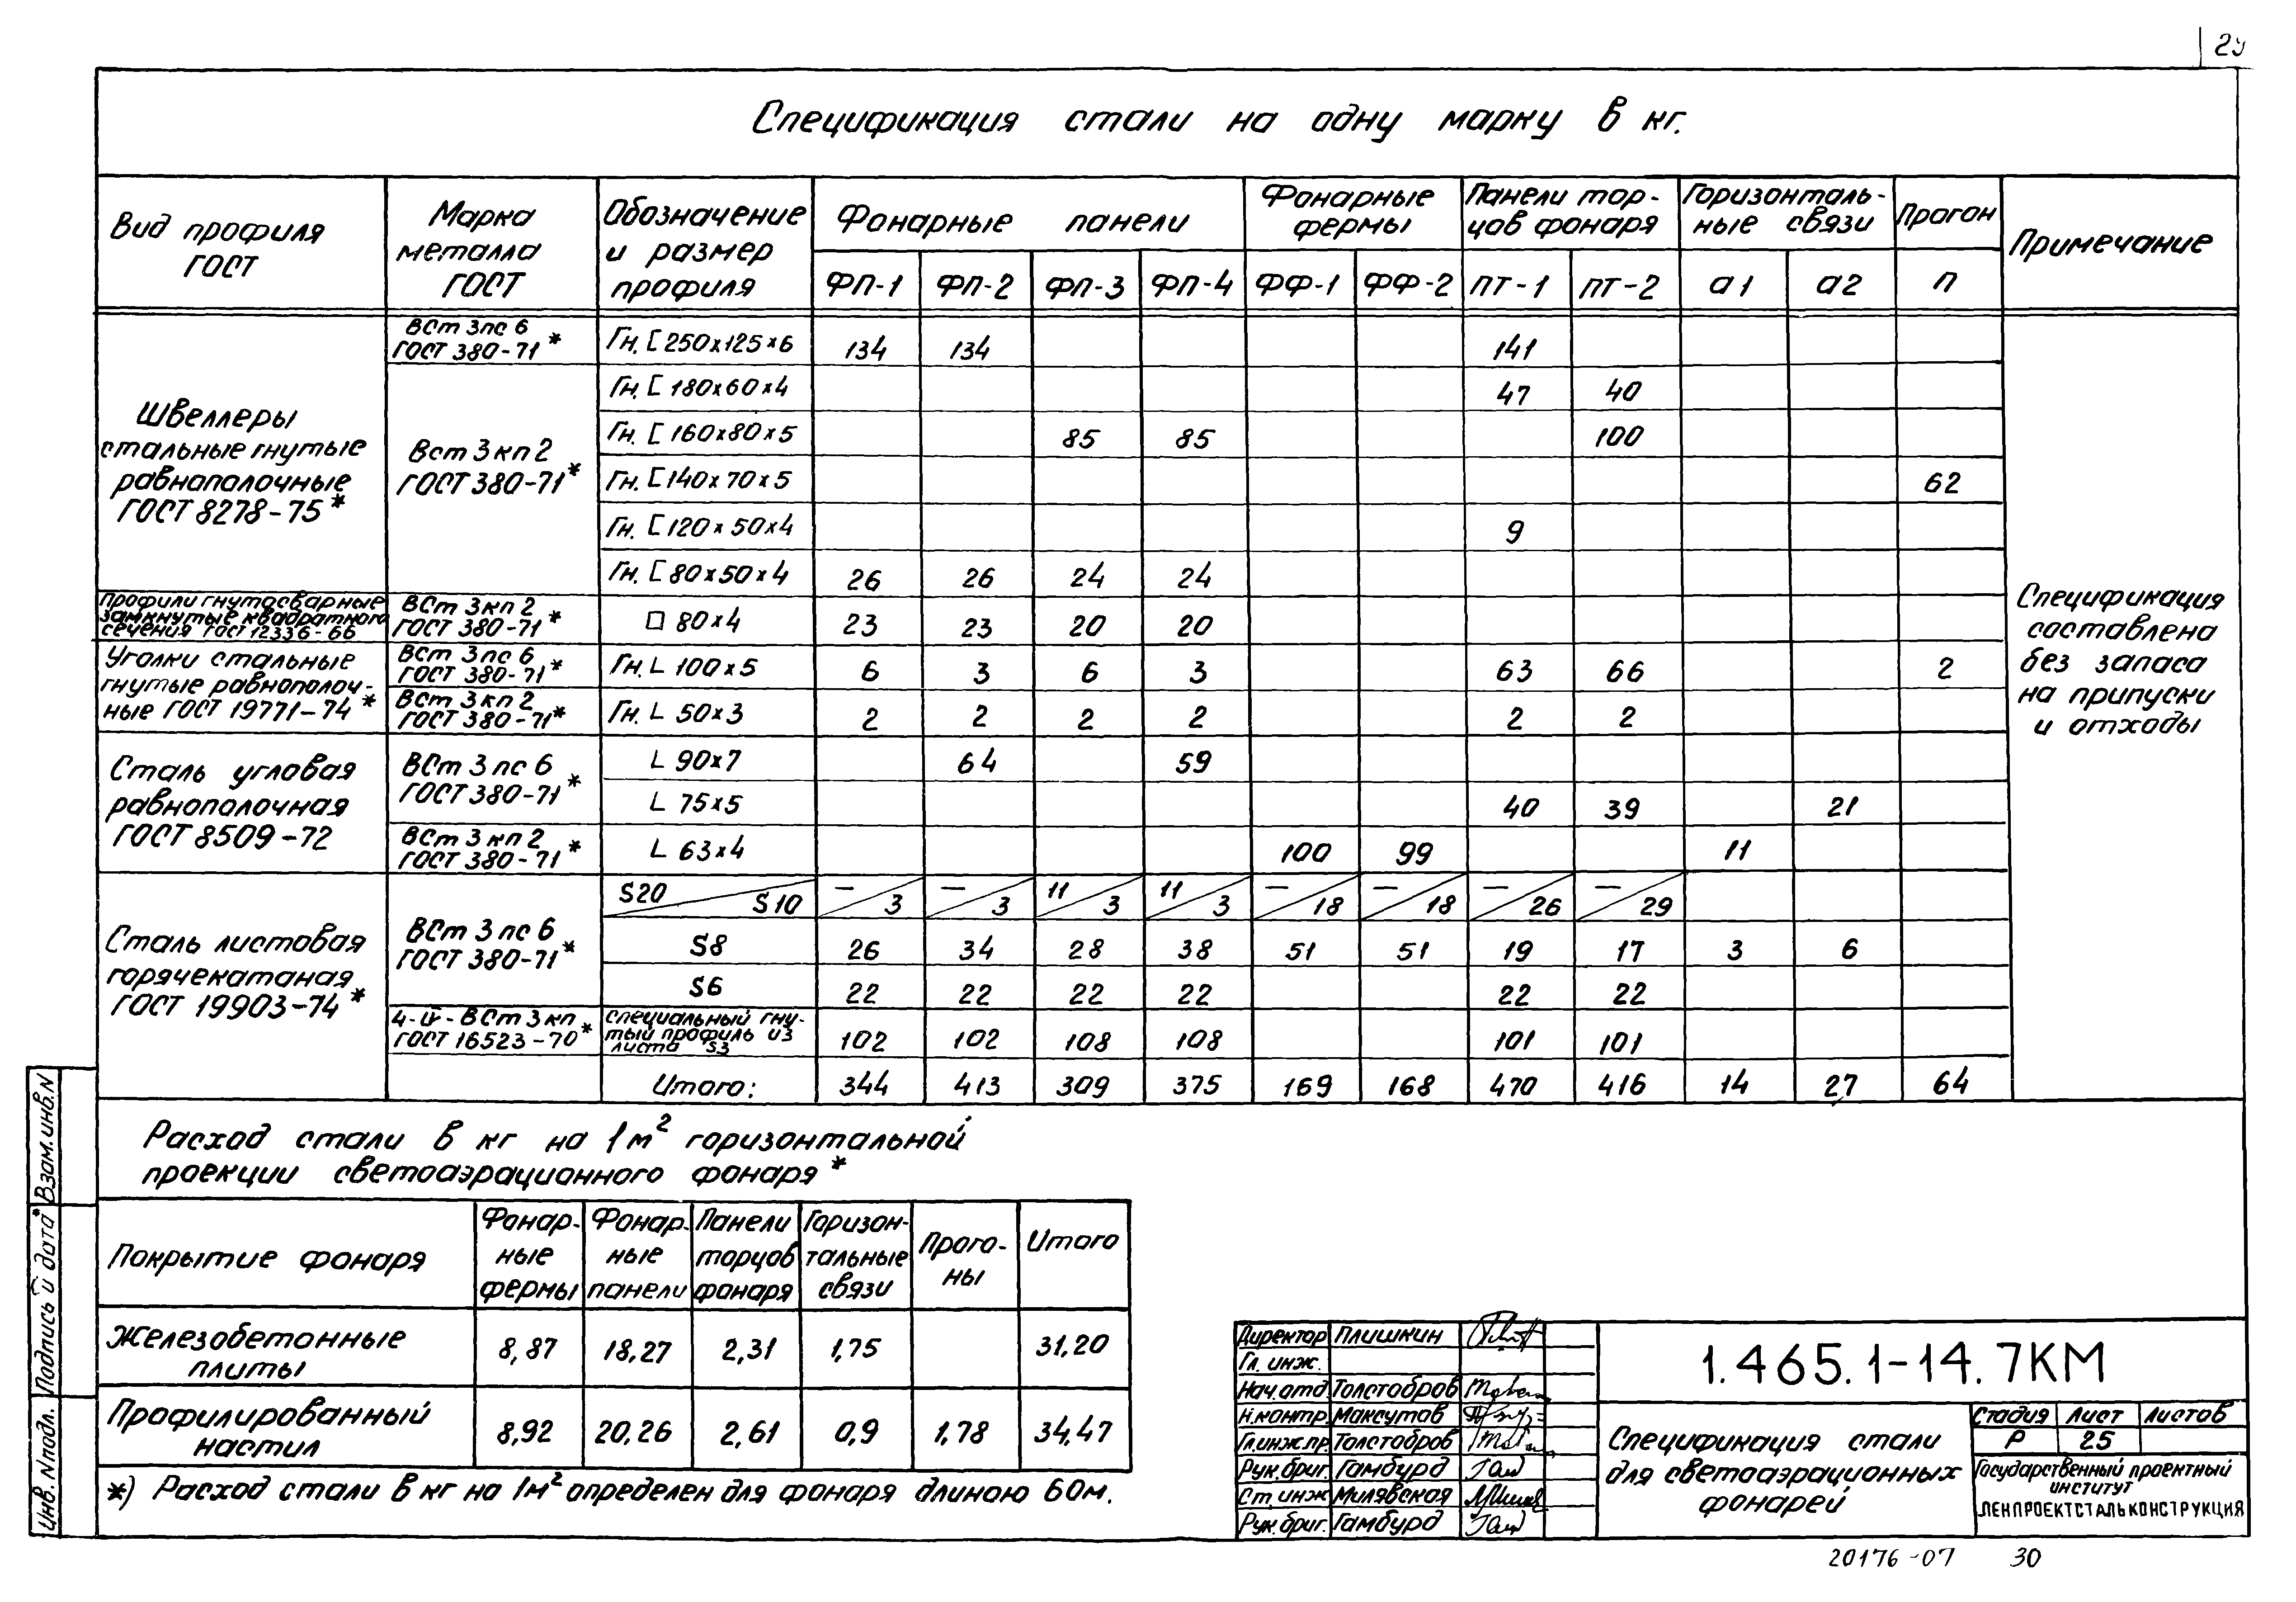 29
Спецификация стали на одну марку в кг.
Вид профиля ГОСТ | Марка металла ГОСТ | Обозначение и размер профиля | Фонарные панели | Фонарные фермы | Панели торцов фонаря | Горизонтальные связи | Прогон | Примечание
ФП-1 | ФП-2 | ФП-3 | ФП-4 | ФФ-1 | ФФ-2 | ПТ-1 | ПТ-2 | а1 | а2 | п
Швеллеры стальные гнутые равнополочные ГОСТ 8278-75*
ВСт 3пс 6 ГОСТ 380-71* | Гн. [ 250×125×6 | 134 | 134 | 141
Вст 3 кп 2 ГОСТ 380-71* | Гн. [ 180×60×4 | 47 | 40
Гн. [ 160×80×5 | 85 | 85 | 100
Гн. [ 140×70×5 | 62
Гн. [ 120×50×4 | 9
Гн. [ 80×50×4 | 26 | 26 | 24 | 24
Профили гнутосварные замкнутые квадратного сечения ГОСТ 12336-66 | ВСт 3кп 2 ГОСТ 380-71* | □ 80×4 | 23 | 23 | 20 | 20
Уголки стальные гнутые равнополочные ГОСТ 19771-74*
ВСт 3пс 6 ГОСТ 380-71* | Гн. L 100×5 | 6 | 3 | 6 | 3 | 63 | 66 | 2
ВСт 3 кп 2 ГОСТ 380-71* | Гн. L 50×3 | 2 | 2 | 2 | 2 | 2 | 2
Сталь угловая равнополочная ГОСТ 8509-72
ВСт 3 пс 6 ГОСТ 380-71* | L 90×7 | 64 | 59
L 75×5 | 40 | 39 | 21
ВСт 3 кп 2 ГОСТ 380-71* | L 63×4 | 100 | 99 | 11
Сталь листовая горячекатаная ГОСТ 19903-74*
ВСт 3 пс 6 ГОСТ 380-71* | S20 / S10 | — / 3 | — / 3 | 11 / 3 | 11 / 3 | — / 18 | — / 18 | — / 26 | — / 29
S8 | 26 | 34 | 28 | 38 | 51 | 51 | 19 | 17 | 3 | 6
S6 | 22 | 22 | 22 | 22 | 22 | 22
4-IV-ВСт 3 кп ГОСТ 16523-70* | специальный гнутый профиль из листа S3 | 102 | 102 | 108 | 108 | 101 | 101
Итого: | 344 | 413 | 309 | 375 | 169 | 168 | 470 | 416 | 14 | 27 | 64
Спецификация
составлена
без запаса
на припуски
и отходы
Расход стали в кг на 1м² горизонтальной
проекции светоаэрационного фонаря*
Покрытие фонаря | Фонарные фермы | Фонарные панели | Панели торцов фонаря | Горизонтальные связи | Прогоны | Итого
Железобетонные плиты | 8,87 | 18,27 | 2,31 | 1,75 | 31,20
Профилированный настил | 8,92 | 20,26 | 2,61 | 0,9 | 1,78 | 34,47
*) Расход стали в кг на 1м² определен для фонаря длиною 60м.
Инв. N подл. Подпись и дата Взам. инв. N
Директор Плишкин
Гл. инж.
Нач. отд. Толстобров
Н. контр. Максутов
Гл. инж. пр. Толстобров
Рук. бриг. Гамбурд
Ст. инж Милявская
Рук. бриг. Гамбурд
1.465.1-14.7КМ
Спецификация стали
для светоаэрационных
фонарей
Стадия Лист Листов
Р 25
Государственный проектный
институт
ЛЕНПРОЕКТСТАЛЬКОНСТРУКЦИЯ
20176-07 30